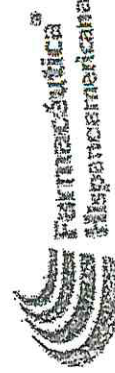 Farmacéutica
Hispanoamericana